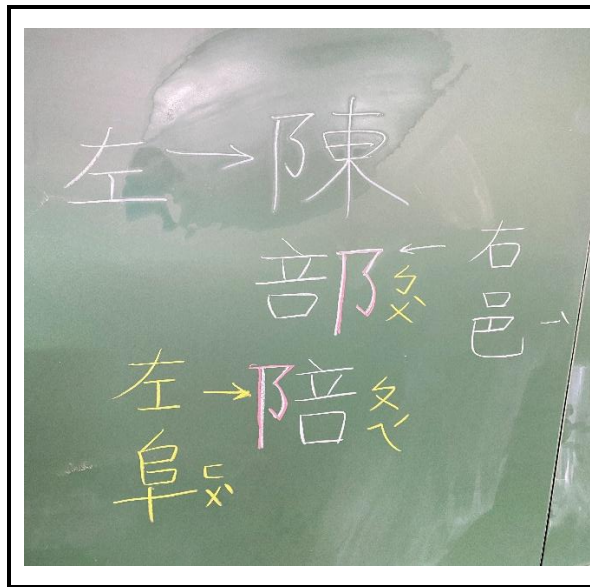 左→陳
部ㄅㄨˋ←右
邑ㄧˋ
左→陪ㄆㄟˊ
阜ㄈㄨˋ